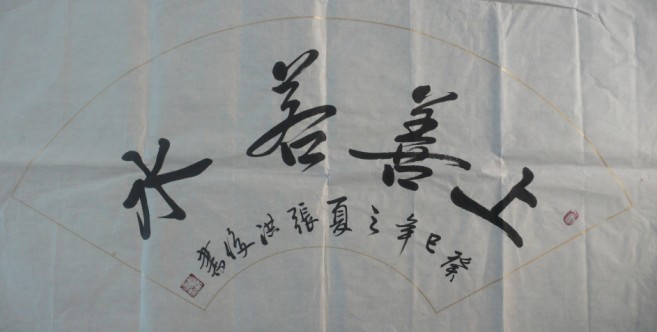 上善若水
癸巳年之夏張洪俊書